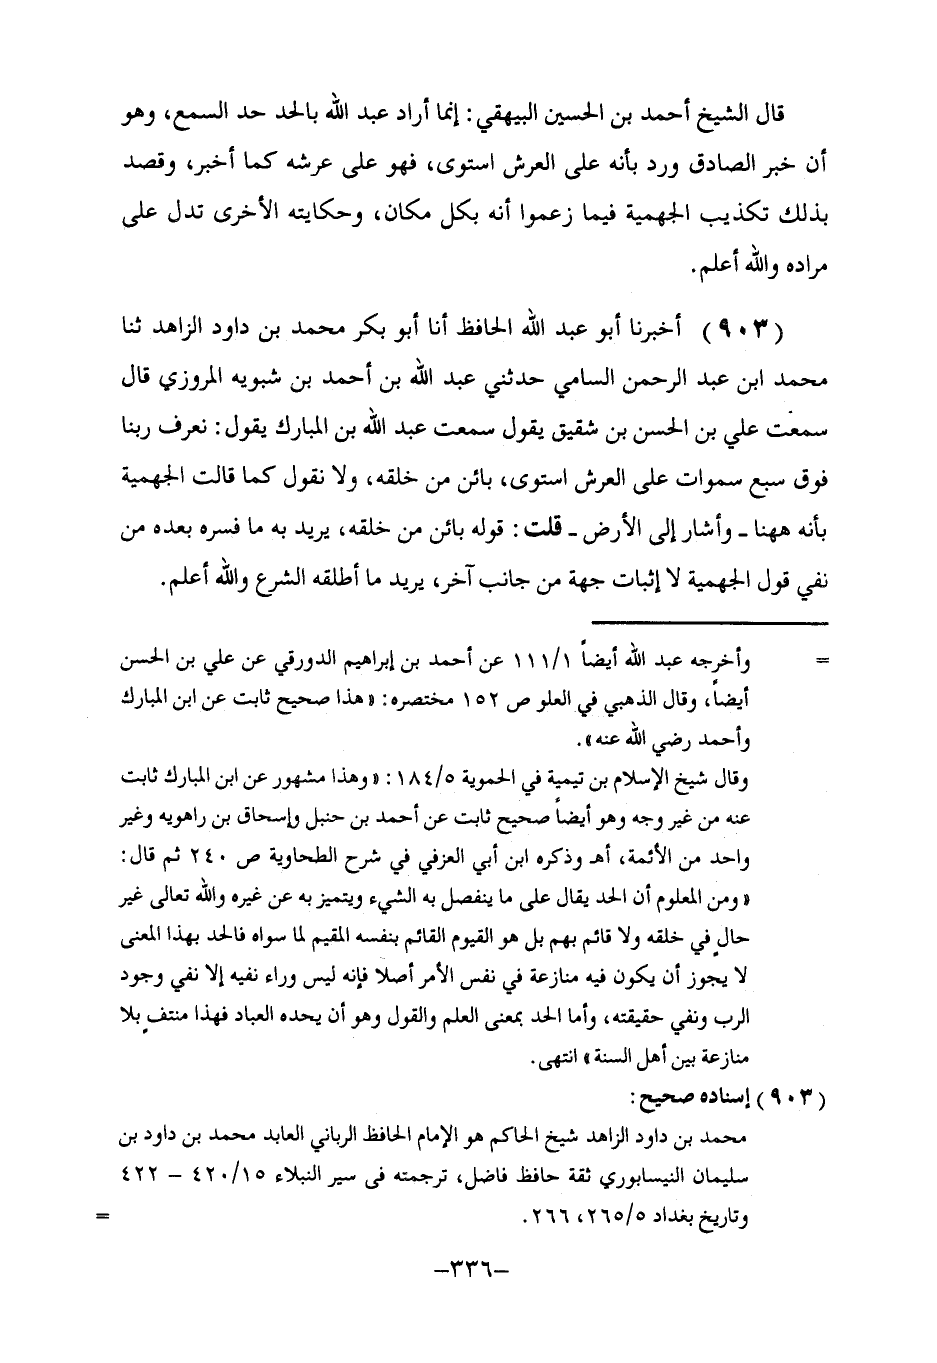 قال الشيخ أحمد بن الحسين البيهقي: إنما أراد عبد الله بالحد حد السمع، وهو
أن خبر الصادق ورد بأنه على العرش استوى، فهو على عرشه كما أخبر، وقصد
بذلك تكذيب الجهمية فيما زعموا أنه بكل مكان، وحكايته الأخرى تدل على
مراده والله أعلم.
(٩٠٣) أخبرنا أبو عبد الله الحافظ أنا أبو بكر محمد بن داود الزاهد ثنا
محمد ابن عبد الرحمن السامي حدثني عبد الله بن أحمد بن شبويه المروزي قال
سمعت علي بن الحسن بن شقيق يقول سمعت عبد الله بن المبارك يقول: نعرف ربنا
فوق سبع سموات على العرش استوى، بائن من خلقه، ولا نقول كما قالت الجهمية
بأنه ههنا ـ وأشار إلى الأرض ـ قلت: قوله بائن من خلقه، يريد به ما فسره بعده من
نفي قول الجهمية لا إثبات جهة من جانب آخر، يريد ما أطلقه الشرع والله أعلم.
= وأخرجه عبد الله أيضاً ١١١/١ عن أحمد بن إبراهيم الدورقي عن علي بن الحسن
أيضاً، وقال الذهبي في العلو ص ١٥٢ مختصره: «هذا صحيح ثابت عن ابن المبارك
وأحمد رضي الله عنه».
وقال شيخ الإسلام بن تيمية في الحموية ١٨٤/٥: «وهذا مشهور عن ابن المبارك ثابت
عنه من غير وجه وهو أيضاً صحيح ثابت عن أحمد بن حنبل وإسحاق بن راهويه وغير
واحد من الأئمة، أهـ وذكره ابن أبي العزفي في شرح الطحاوية ص ٢٤٠ ثم قال:
«ومن المعلوم أن الحد يقال على ما ينفصل به الشيء ويتميز به عن غيره والله تعالى غير
حالٍ في خلقه ولا قائم بهم بل هو القيوم القائم بنفسه المقيم لما سواه فالحد بهذا المعنى
لا يجوز أن يكون فيه منازعة في نفس الأمر أصلا فإنه ليس وراء نفيه إلا نفي وجود
الرب ونفي حقيقته، وأما الحد بمعنى العلم والقول وهو أن يحده العباد فهذا منتفٍ بلا
منازعة بين أهل السنة» انتهى.
(٩٠٣) إسناده صحيح:
محمد بن داود الزاهد شيخ الحاكم هو الإمام الحافظ الرباني العابد محمد بن داود بن
سليمان النيسابوري ثقة حافظ فاضل، ترجمته في سير النبلاء ٤٢٠/١٥ – ٤٢٢
وتاريخ بغداد ٢٦٥/٥، ٢٦٦. =
–٣٣٦–